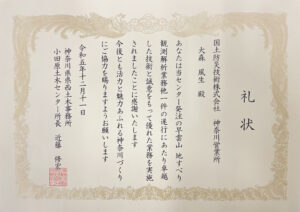 礼状
国土防災技術株式会社 神奈川営業所
大森 風生 殿
あなたは当センター発注の早雲山 地すべり
観測解析業務他一件の遂行にあたり卓越
した技術と誠意をもって優れた業務を実施
されましたことに感謝いたします
今後とも活力と魅力あふれる神奈川づくり
にご協力を賜りますようお願いします
令和五年十二月十一日
神奈川県県西土木事務所
小田原土木センター所長 近藤 修宏